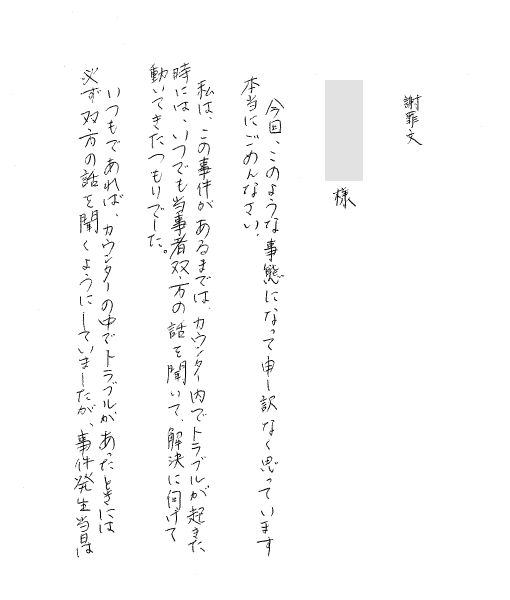 謝罪文
様
今回、このような事態になって申し訳なく思っています
本当にごめんなさい.
私は、この事件があるまでは、カウンター内でトラブルが起きた
時には、いつでも当事者双方の話を聞いて、解決に向けて
動いてきたつもりでした。
いつもであれば、カウンターの中でトラブルがあったときには
必ず双方の話を聞くようにしていましたが、事件発生当日は